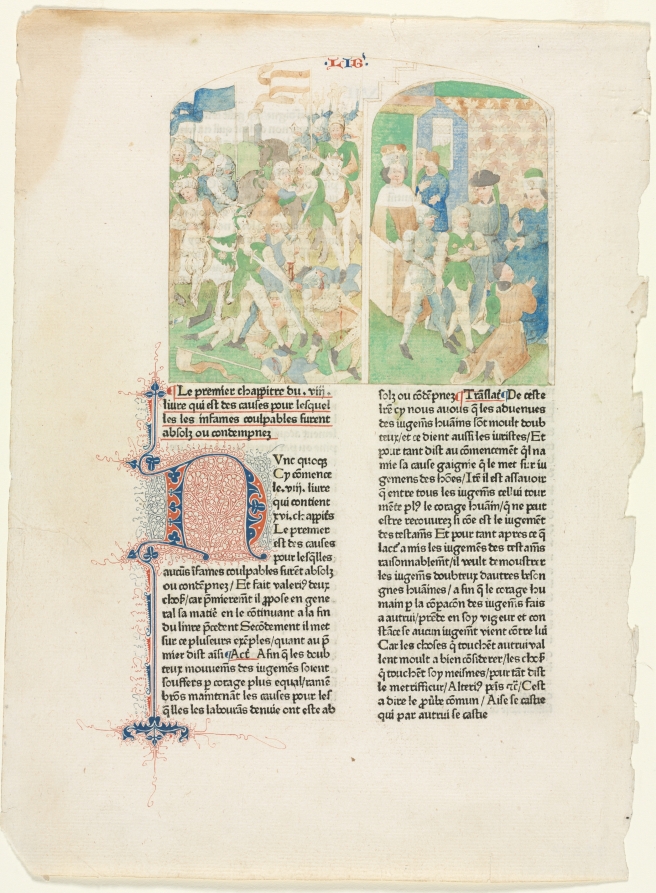 LIB
Le premier chappitre du . viii .
liure qui est des causes pour lesquel
les les infames coulpables furent
absolz ou contempnez
Vnc quocq3
Cy cōmence
le . viij . liure
qui contient
xvi. chappit̃s
Le premier
est des causes
pour lesq̄lles
aucūs īfames coulpables furēt absolz
ou contēpnez / Et fait valeri9 deux
choſ/car p̄mieremt̄ il ppose en gene
ral sa matie en le cōtinuant a la fin
du liure p̄cedent Secōdement il met
sur ce pluseurs exēples/quant au p̄
mier dist aisi Act̄. Afin q̄ les doub
teux mouuemēs des iugemēs soient
souffers p corage plus equal/ramē
brōs maintenāt les causes pour les
q̄lles les labourās denuie ont este ab
solz ou cōdēpnez Trāslat̄ De ceste
lr̄e cy nous auons q̄ les aduenues
des iugemēs hūains sōt moult doub
teux/et ce dient aussi les iuristes/Et
pour tant dist au cōmencement q̄l na
mie sa cause gaignie q̄ le met sur iu
gemens des hōes/Itē il est assauoir
q̄ entre tous les iugemēs cellui tour
mēte pl9 le corage hūain/q̄ ne puet
estre recouurez si cōe est le iugemēt
des testamēs Et pour tant apres ce q̄
lact̄ a mis les iugemēs des testamēs
raisonnablemt̄/il veult demoustrer
les iugemēs doubteux dautres beson
gnes hūaines/a fin q̄ le corage hu
main p la cōpacōn des iugemēs fais
a autrui/prēde en soy vigeur et con
stāce se aucun iugemt̄ vient cōtre lui
Car les choses q̄ touchēt autrui val
lent moult a bien cōsiderer/les choſ
q̄ touchēt soy meismes/pour tāt dist
le metrifficur/Alteri9 p̄ns rc̄/Cest
a dire le p̄ūbe cōmun/Aise se castie
qui par autrui se castie